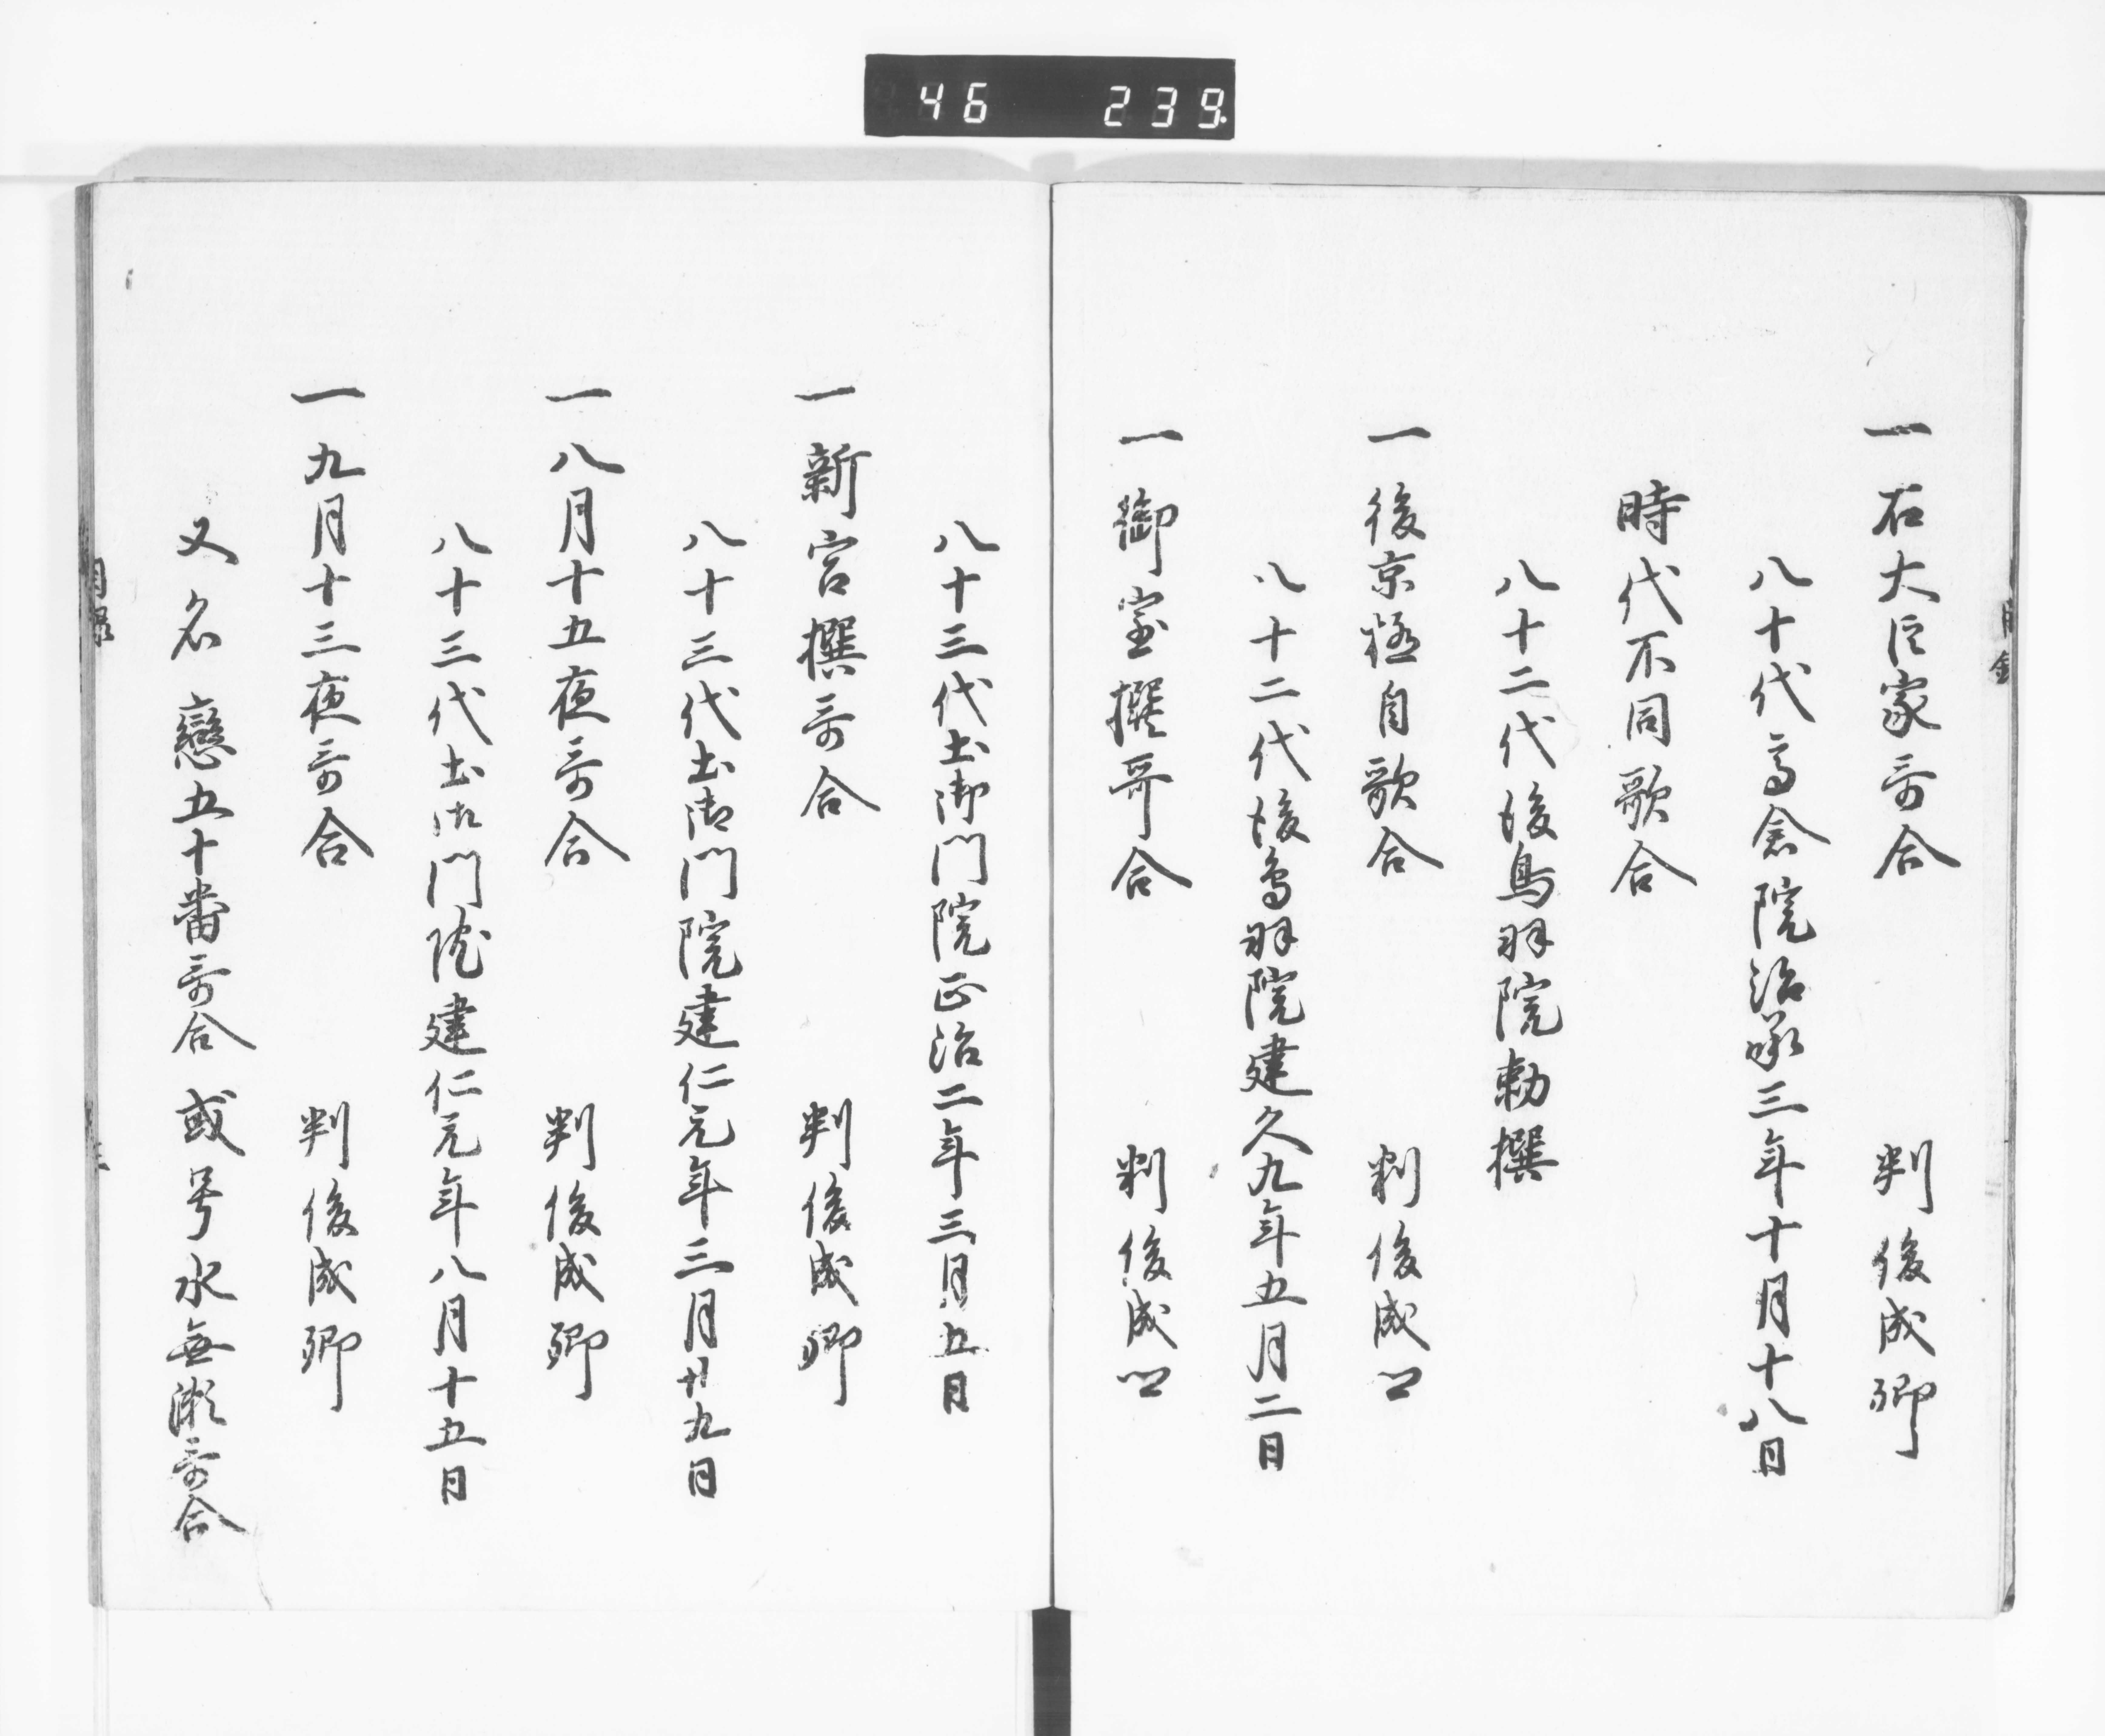 46 239
一右大臣家哥合 判俊成卿
八十代高倉院治承三年十月十八日
時代不同歌合
八十二代後鳥羽院勅撰
一後京極自歌合 判俊成口
八十二代後鳥羽院建久九年五月二日
一御室撰哥合 判俊成口
八十三代土御門院正治二年三月五日
一新宮撰哥合 判俊成卿
八十三代土御門院建仁元年三月廿九日
一八月十五夜哥合 判俊成卿
八十三代土御門院建仁元年八月十五日
一九月十三夜哥合 判俊成卿
又名戀五十番哥合或号水無瀬哥合
目録